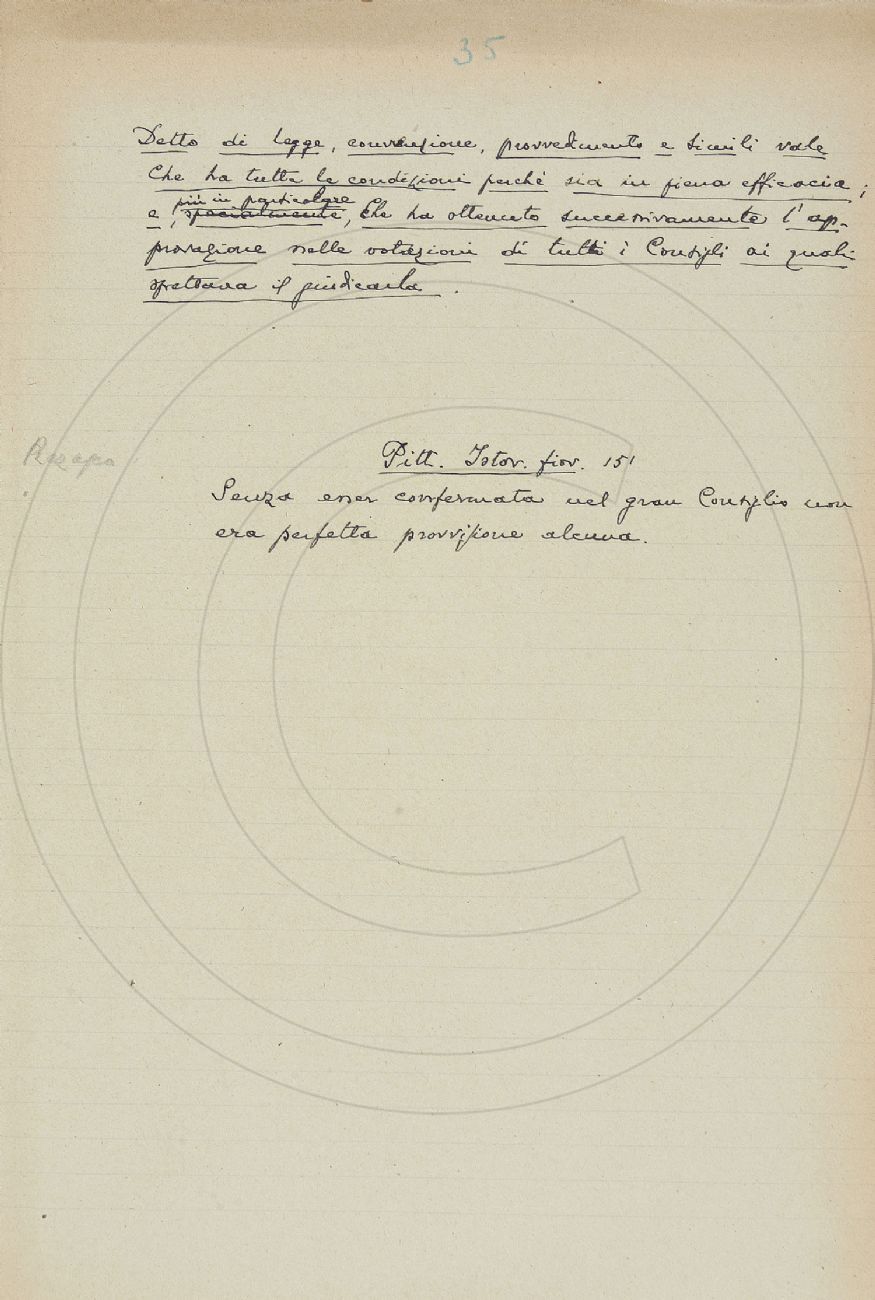 35
Detto di legge, convenzione, provvedimento e simili vale
Che ha tutte le condizioni perchè sia in piena efficacia;
più in particolare
e, specialmente, Che ha ottenuto successivamente l'ap-
provazione nelle votazioni di tutti i Consigli ai quali
spettava il giudicarla.
Pitt. Istor. fior. 151
Senza esser confermata nel gran Consiglio non
era perfetta provvisione alcuna.